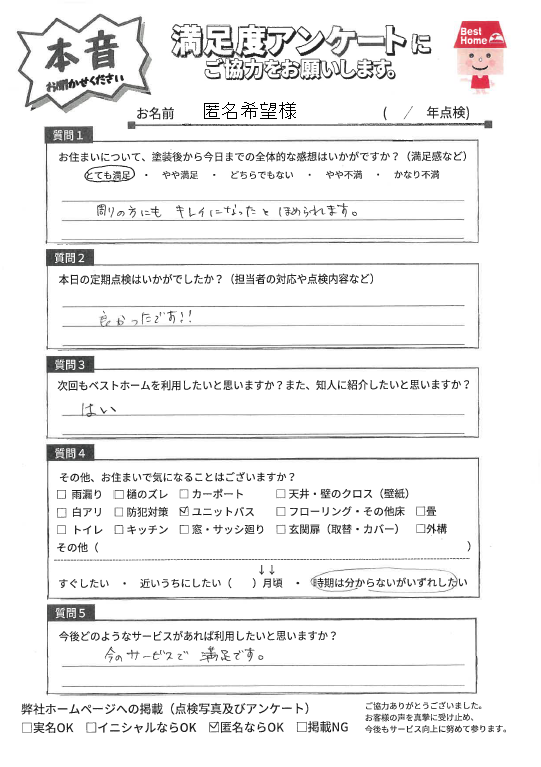 本音
お聞かせください
満足度アンケートに
ご協力をお願いします。
Best Home
お名前 匿名希望様 ( / 年点検)
質問1
お住まいについて、塗装後から今日までの全体的な感想はいかがですか?(満足感など)
とても満足 ・ やや満足 ・ どちらでもない ・ やや不満 ・ かなり不満
周りの方にも キレイになったと ほめられます。
質問2
本日の定期点検はいかがでしたか?(担当者の対応や点検内容など)
良かったです!!
質問3
次回もベストホームを利用したいと思いますか?また、知人に紹介したいと思いますか?
はい
質問4
その他、お住まいで気になることはございますか?
□ 雨漏り □ 樋のズレ □ カーポート □ 天井・壁のクロス(壁紙)
□ 白アリ □ 防犯対策 ☑ ユニットバス □ フローリング・その他床 □畳
□ トイレ □ キッチン □ 窓・サッシ廻り □ 玄関扉(取替・カバー) □外構
その他( )
↓↓
すぐしたい ・ 近いうちにしたい( )月頃 ・ 時期は分からないがいずれしたい
質問5
今後どのようなサービスがあれば利用したいと思いますか?
今のサービスで 満足です。
弊社ホームページへの掲載(点検写真及びアンケート)
□実名OK □イニシャルならOK ☑匿名ならOK □掲載NG
ご協力ありがとうございました。
お客様の声を真摯に受け止め、
今後もサービス向上に努めて参ります。